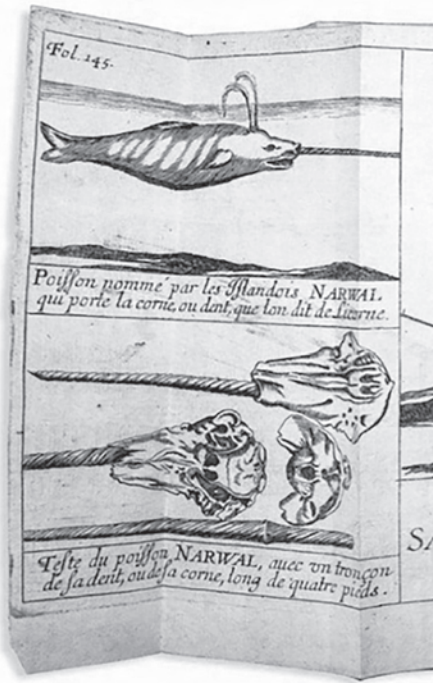 Fol. 145.
Poisson nommé par les Islandois NARWAL
qui porte la corne, ou dent, que lon dit de Licorne.
SA
Teste du poisson NARWAL, avec vn tronçon
de sa dent, ou de sa corne, long de quatre pieds.